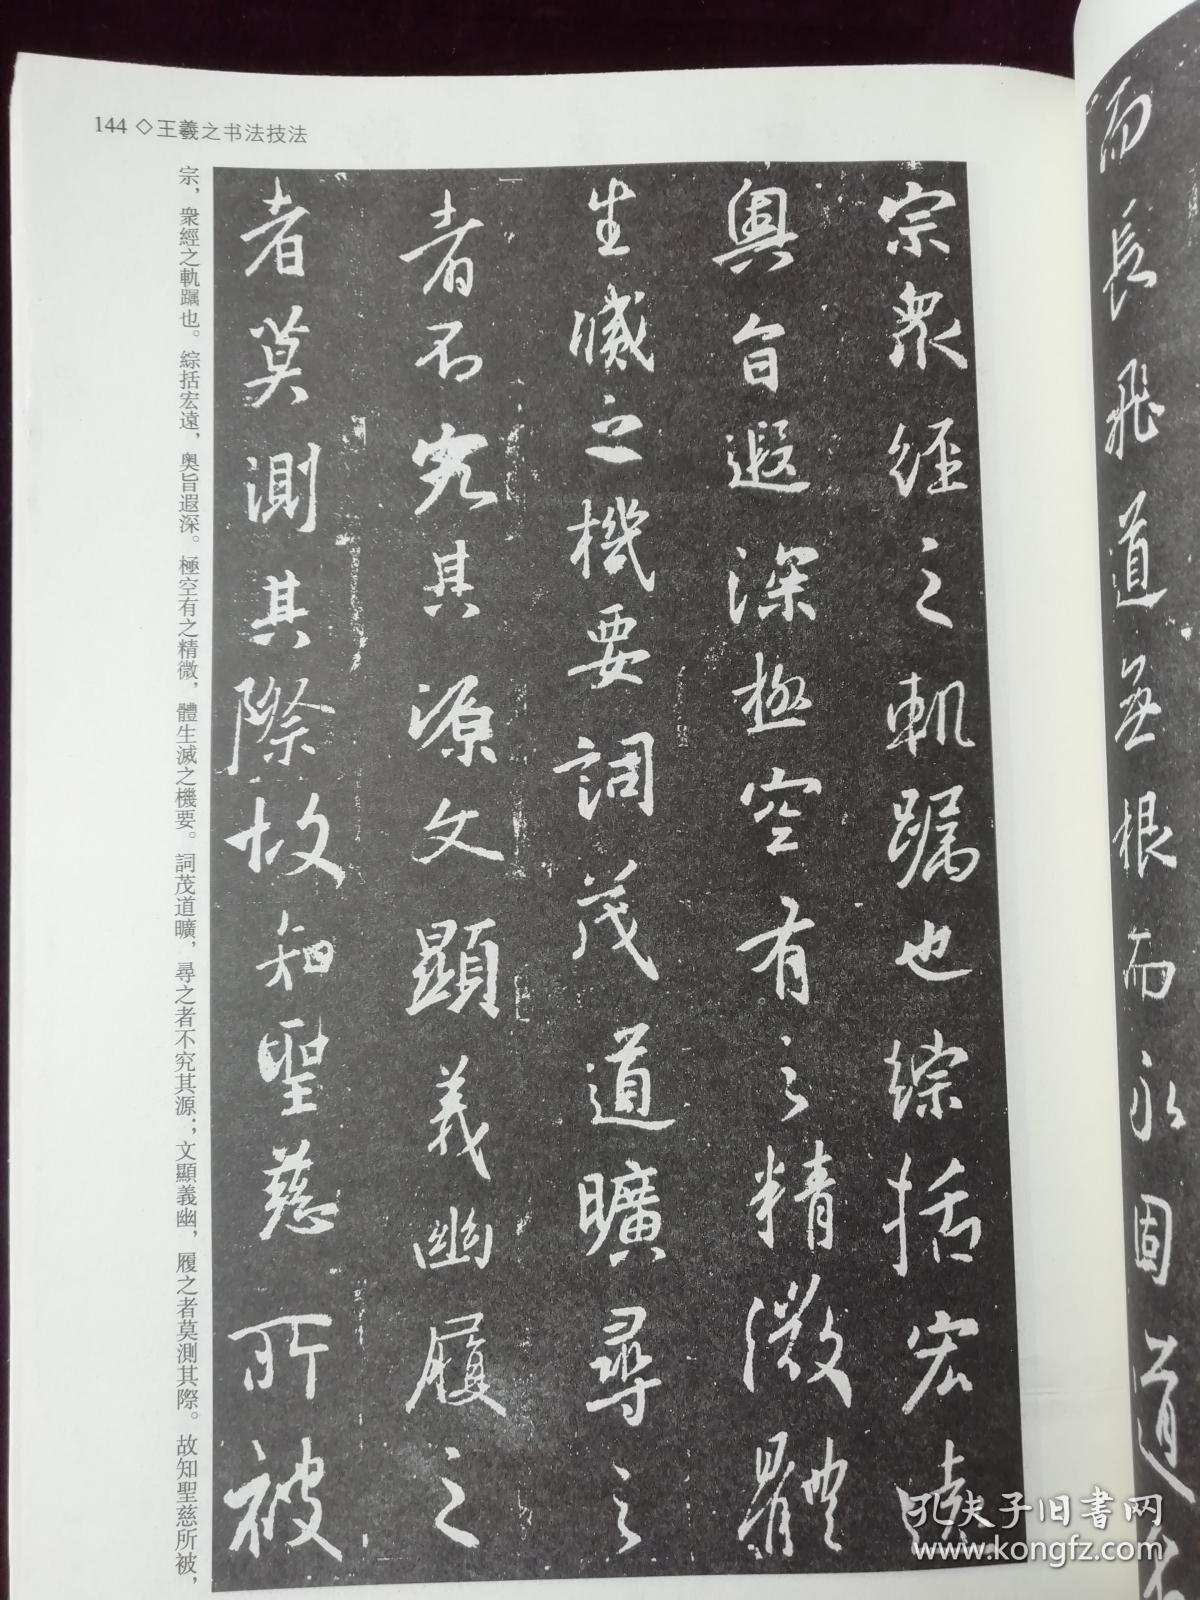 144◇王羲之书法技法
宗衆經之軌躅也綜括宏遠
奧旨遐深極空有之精微體
生滅之機要詞茂道曠尋之
者不究其源文顯義幽履之
者莫測其際故知聖慈所被
宗，衆經之軌躅也。綜括宏遠，奥旨遐深。極空有之精微，體生滅之機要。詞茂道曠，尋之者不究其源；文顯義幽，履之者莫測其際。故知聖慈所被，
而長飛道無根而永固道
孔夫子旧书网
www.kongfz.com